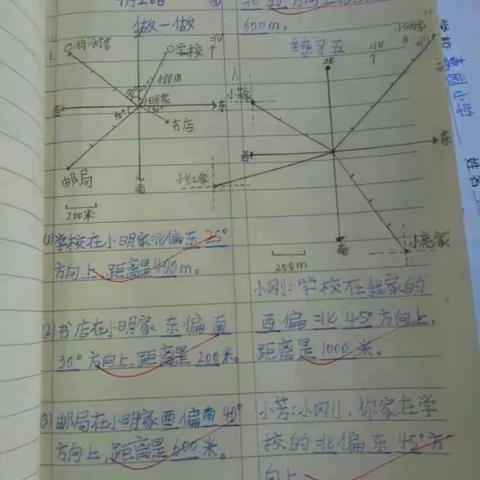 9月26日
做一做
600m。
练习五
1.
游泳馆
学校
北
400m
小明家
西
东
书店
邮局
南
200米
(1)学校在小明家北偏东25°
方向上,距离是400m。
(2)书店在小明家东偏南
30°方向上,距离是200米。
(3)邮局在小明家西偏南40°
方向上,距离是600米。
1.
北
小明家
小芳家
西
东
小红家
南
小亮家
200m
小刚:学校在我家的
西偏北45°方向上,
距离是1000米。
小芳:小刚,你家在学
校的北偏东45°方
向上
小学
姓名